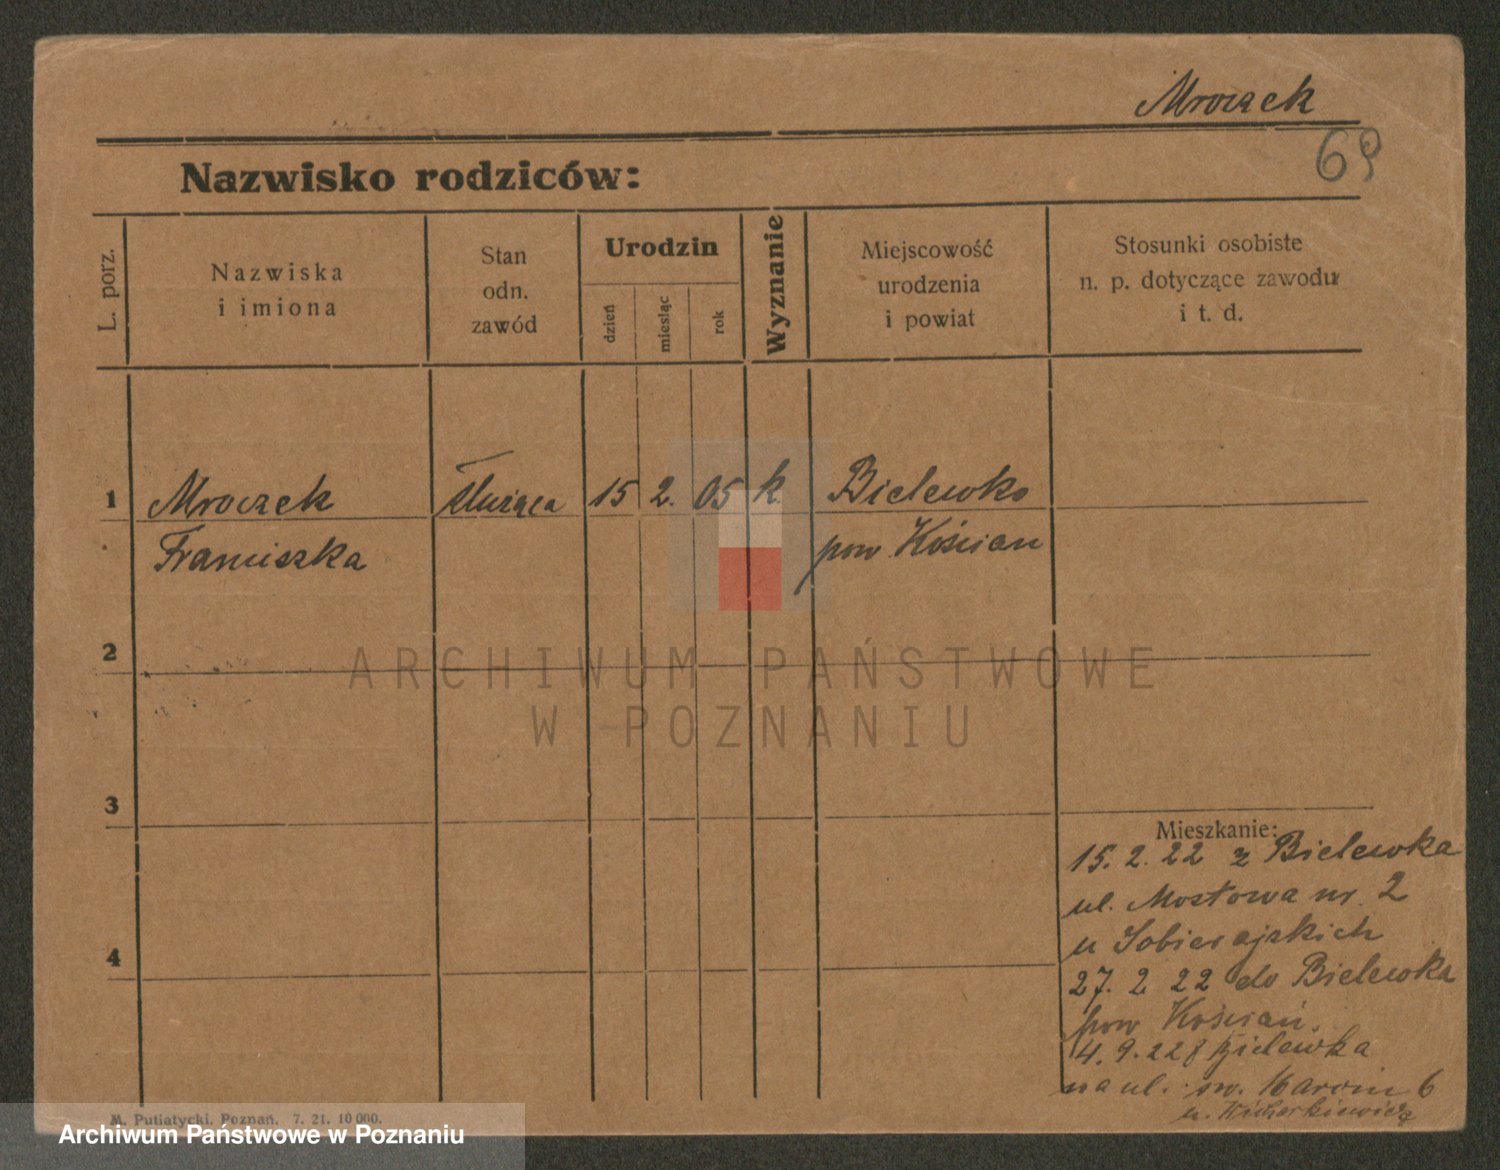 Mroczek
69
Nazwisko rodziców:
L. porz.
Nazwiska
i imiona
Stan
odn.
zawód
Urodzin
dzień
miesiąc
rok
Wyznanie
Miejscowość
urodzenia
i powiat
Stosunki osobiste
n. p. dotyczące zawodu
i t. d.
1 Mroczek służąca 15 2. 05 k. Bielewko
Franciszka pow Kościan
2
ARCHIWUM PAŃSTWOWE
W POZNANIU
3
Mieszkanie:
15. 2. 22 z Bielewka
ul. Mostowa nr. 2
u Sobierajskich
4
27. 2 22 do Bielewka
pow Kościan.
4. 9. 22 z Bielewka
na ul. św. Marcin 6
u.
M. Putiatycki, Poznań. 7. 21. 10 000.
Archiwum Państwowe w Poznaniu